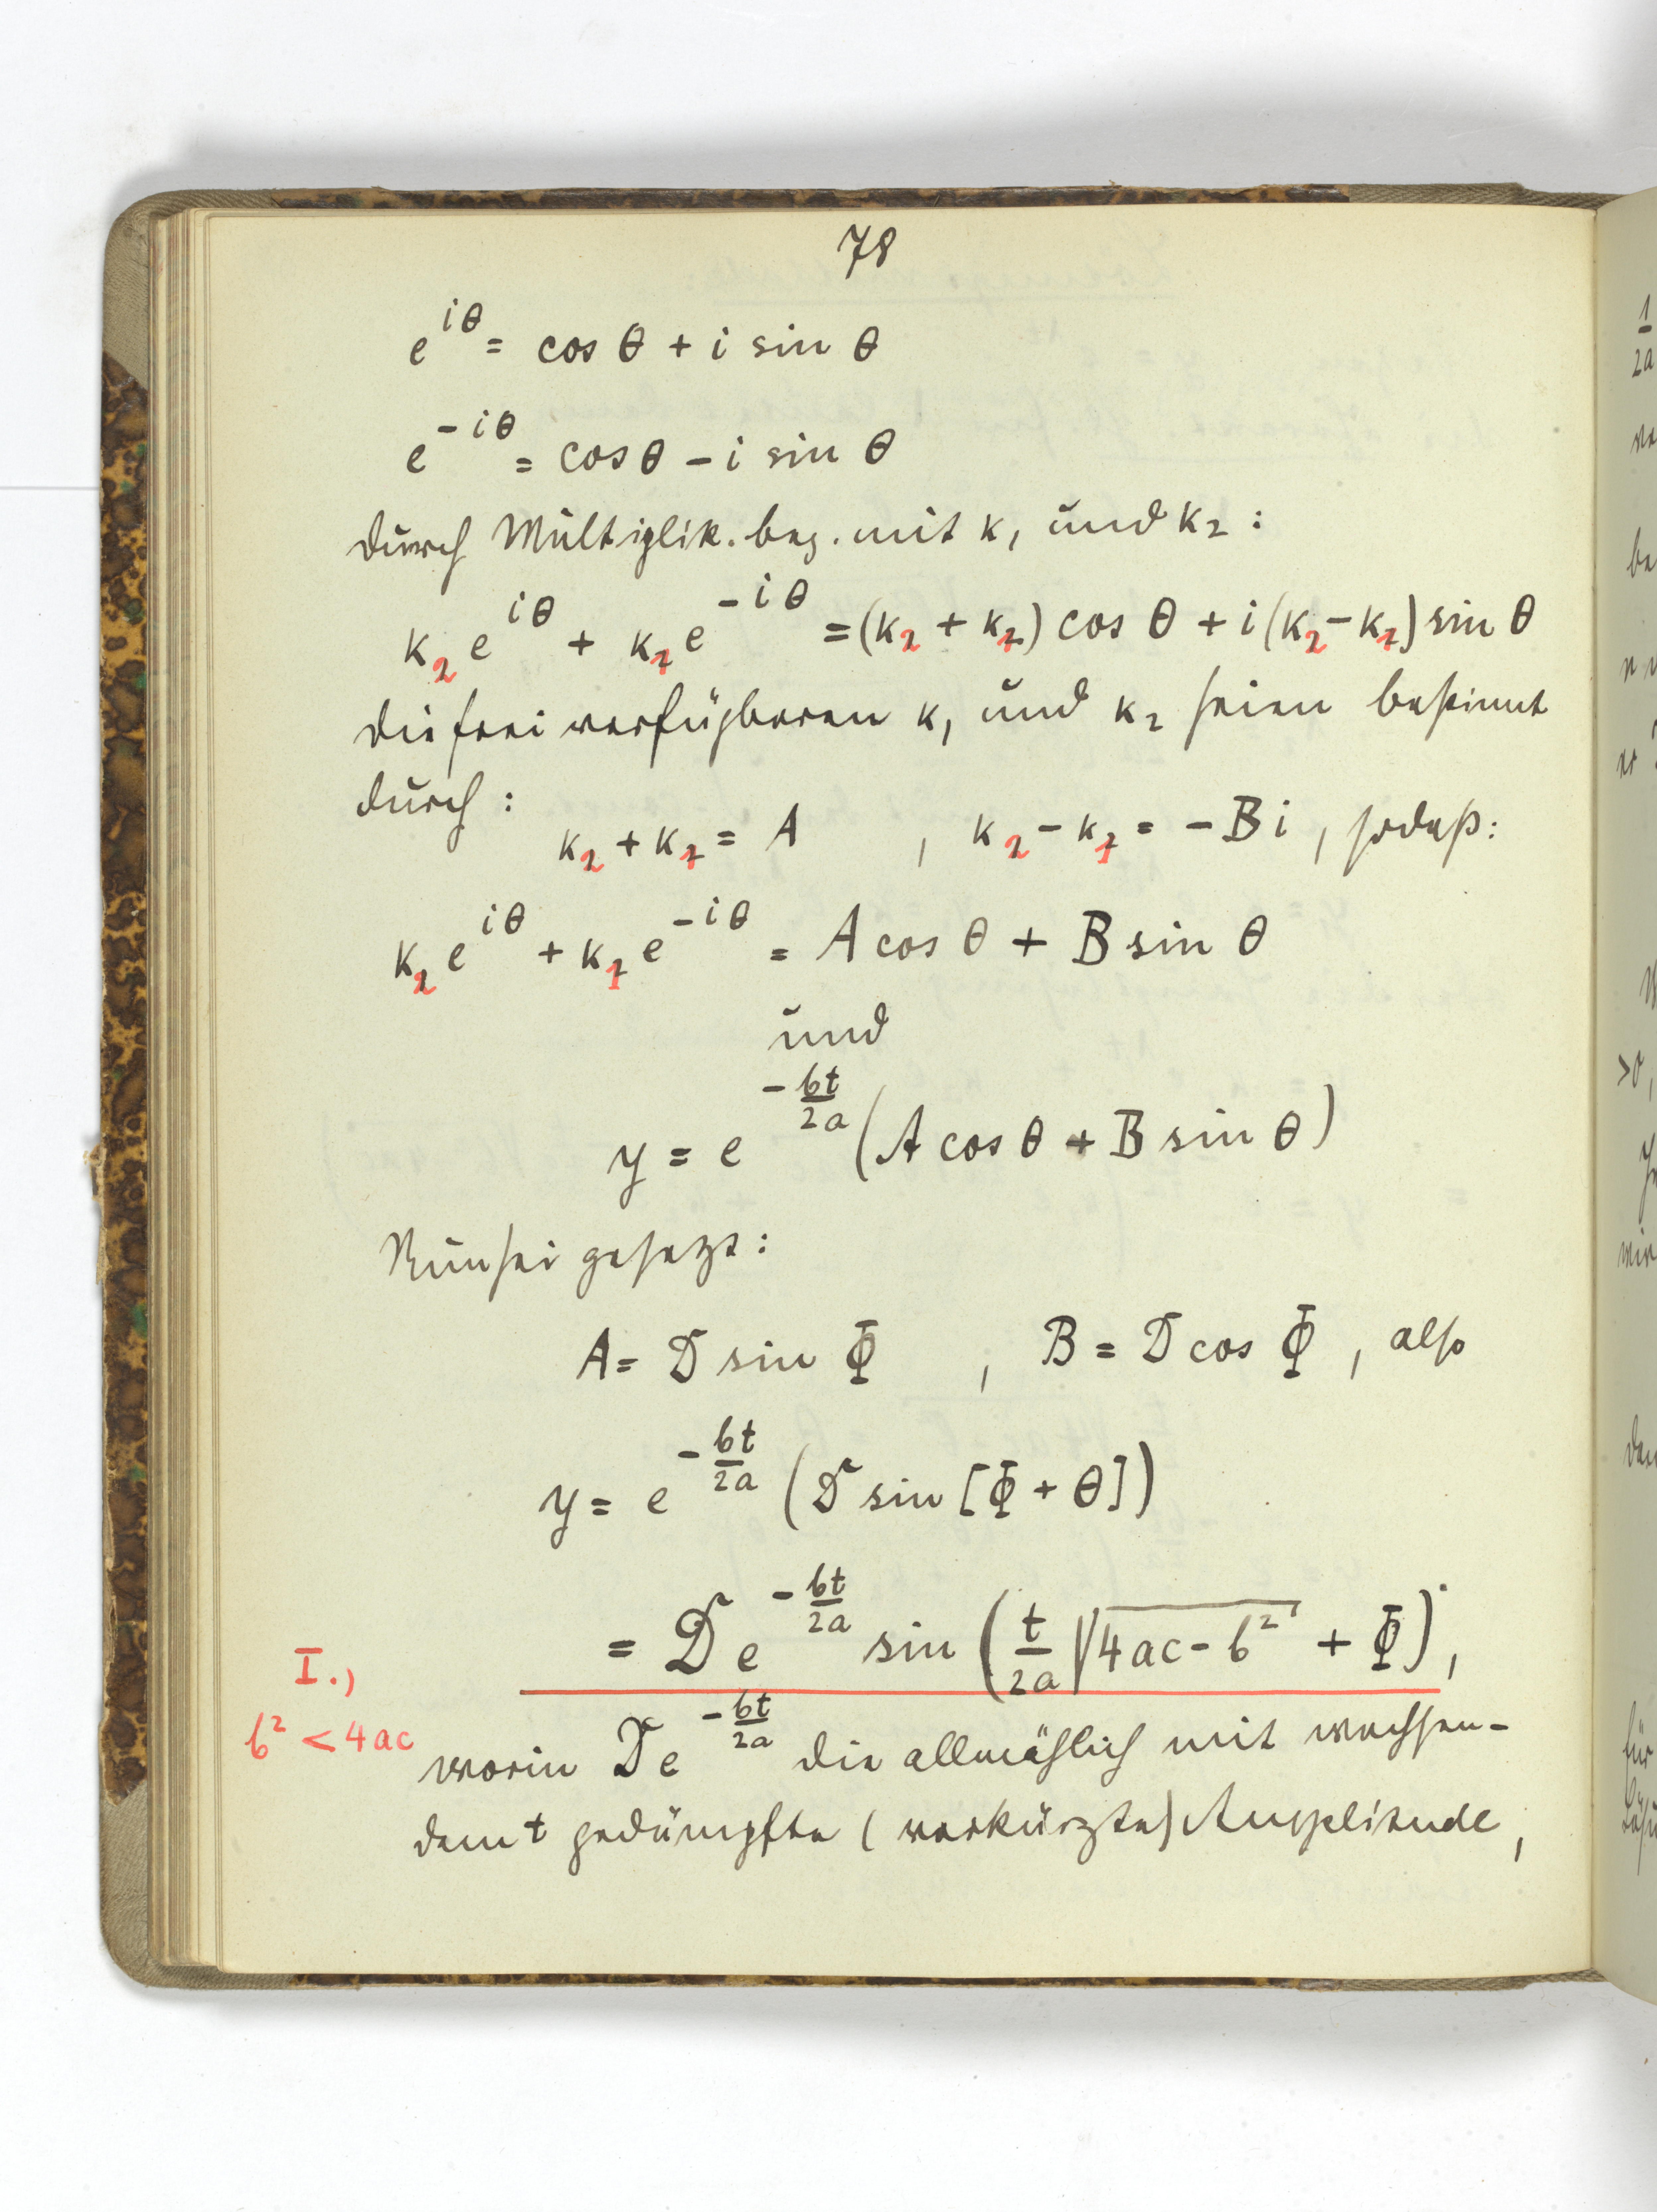 78
e^{iθ} = cos θ + i sin θ
e^{-iθ} = cos θ - i sin θ
durch Multiplik. bez. mit k₁ und k₂ :
k₂ e^{iθ} + k₁ e^{-iθ} = (k₂ + k₁) cos θ + i (k₂ - k₁) sin θ
die frei verfügbaren k₁ und k₂ seien bestimmt
durch :
k₂ + k₁ = A , k₂ - k₁ = - B i , sodaß:
k₂ e^{iθ} + k₁ e^{-iθ} = A cos θ + B sin θ
und
y = e^{-bt/2a} (A cos θ + B sin θ)
Nun sei gesetzt :
A = D sin Φ , B = D cos Φ , also
y = e^{-bt/2a} (D sin [Φ + θ])
= D e^{-bt/2a} sin (t/2a √(4ac - b²) + Φ) ,
I.)
b² < 4ac
worin D e^{-bt/2a} die allmählich mit wachsen-
dem t gedämpfte (verkürzte) Amplitude ,